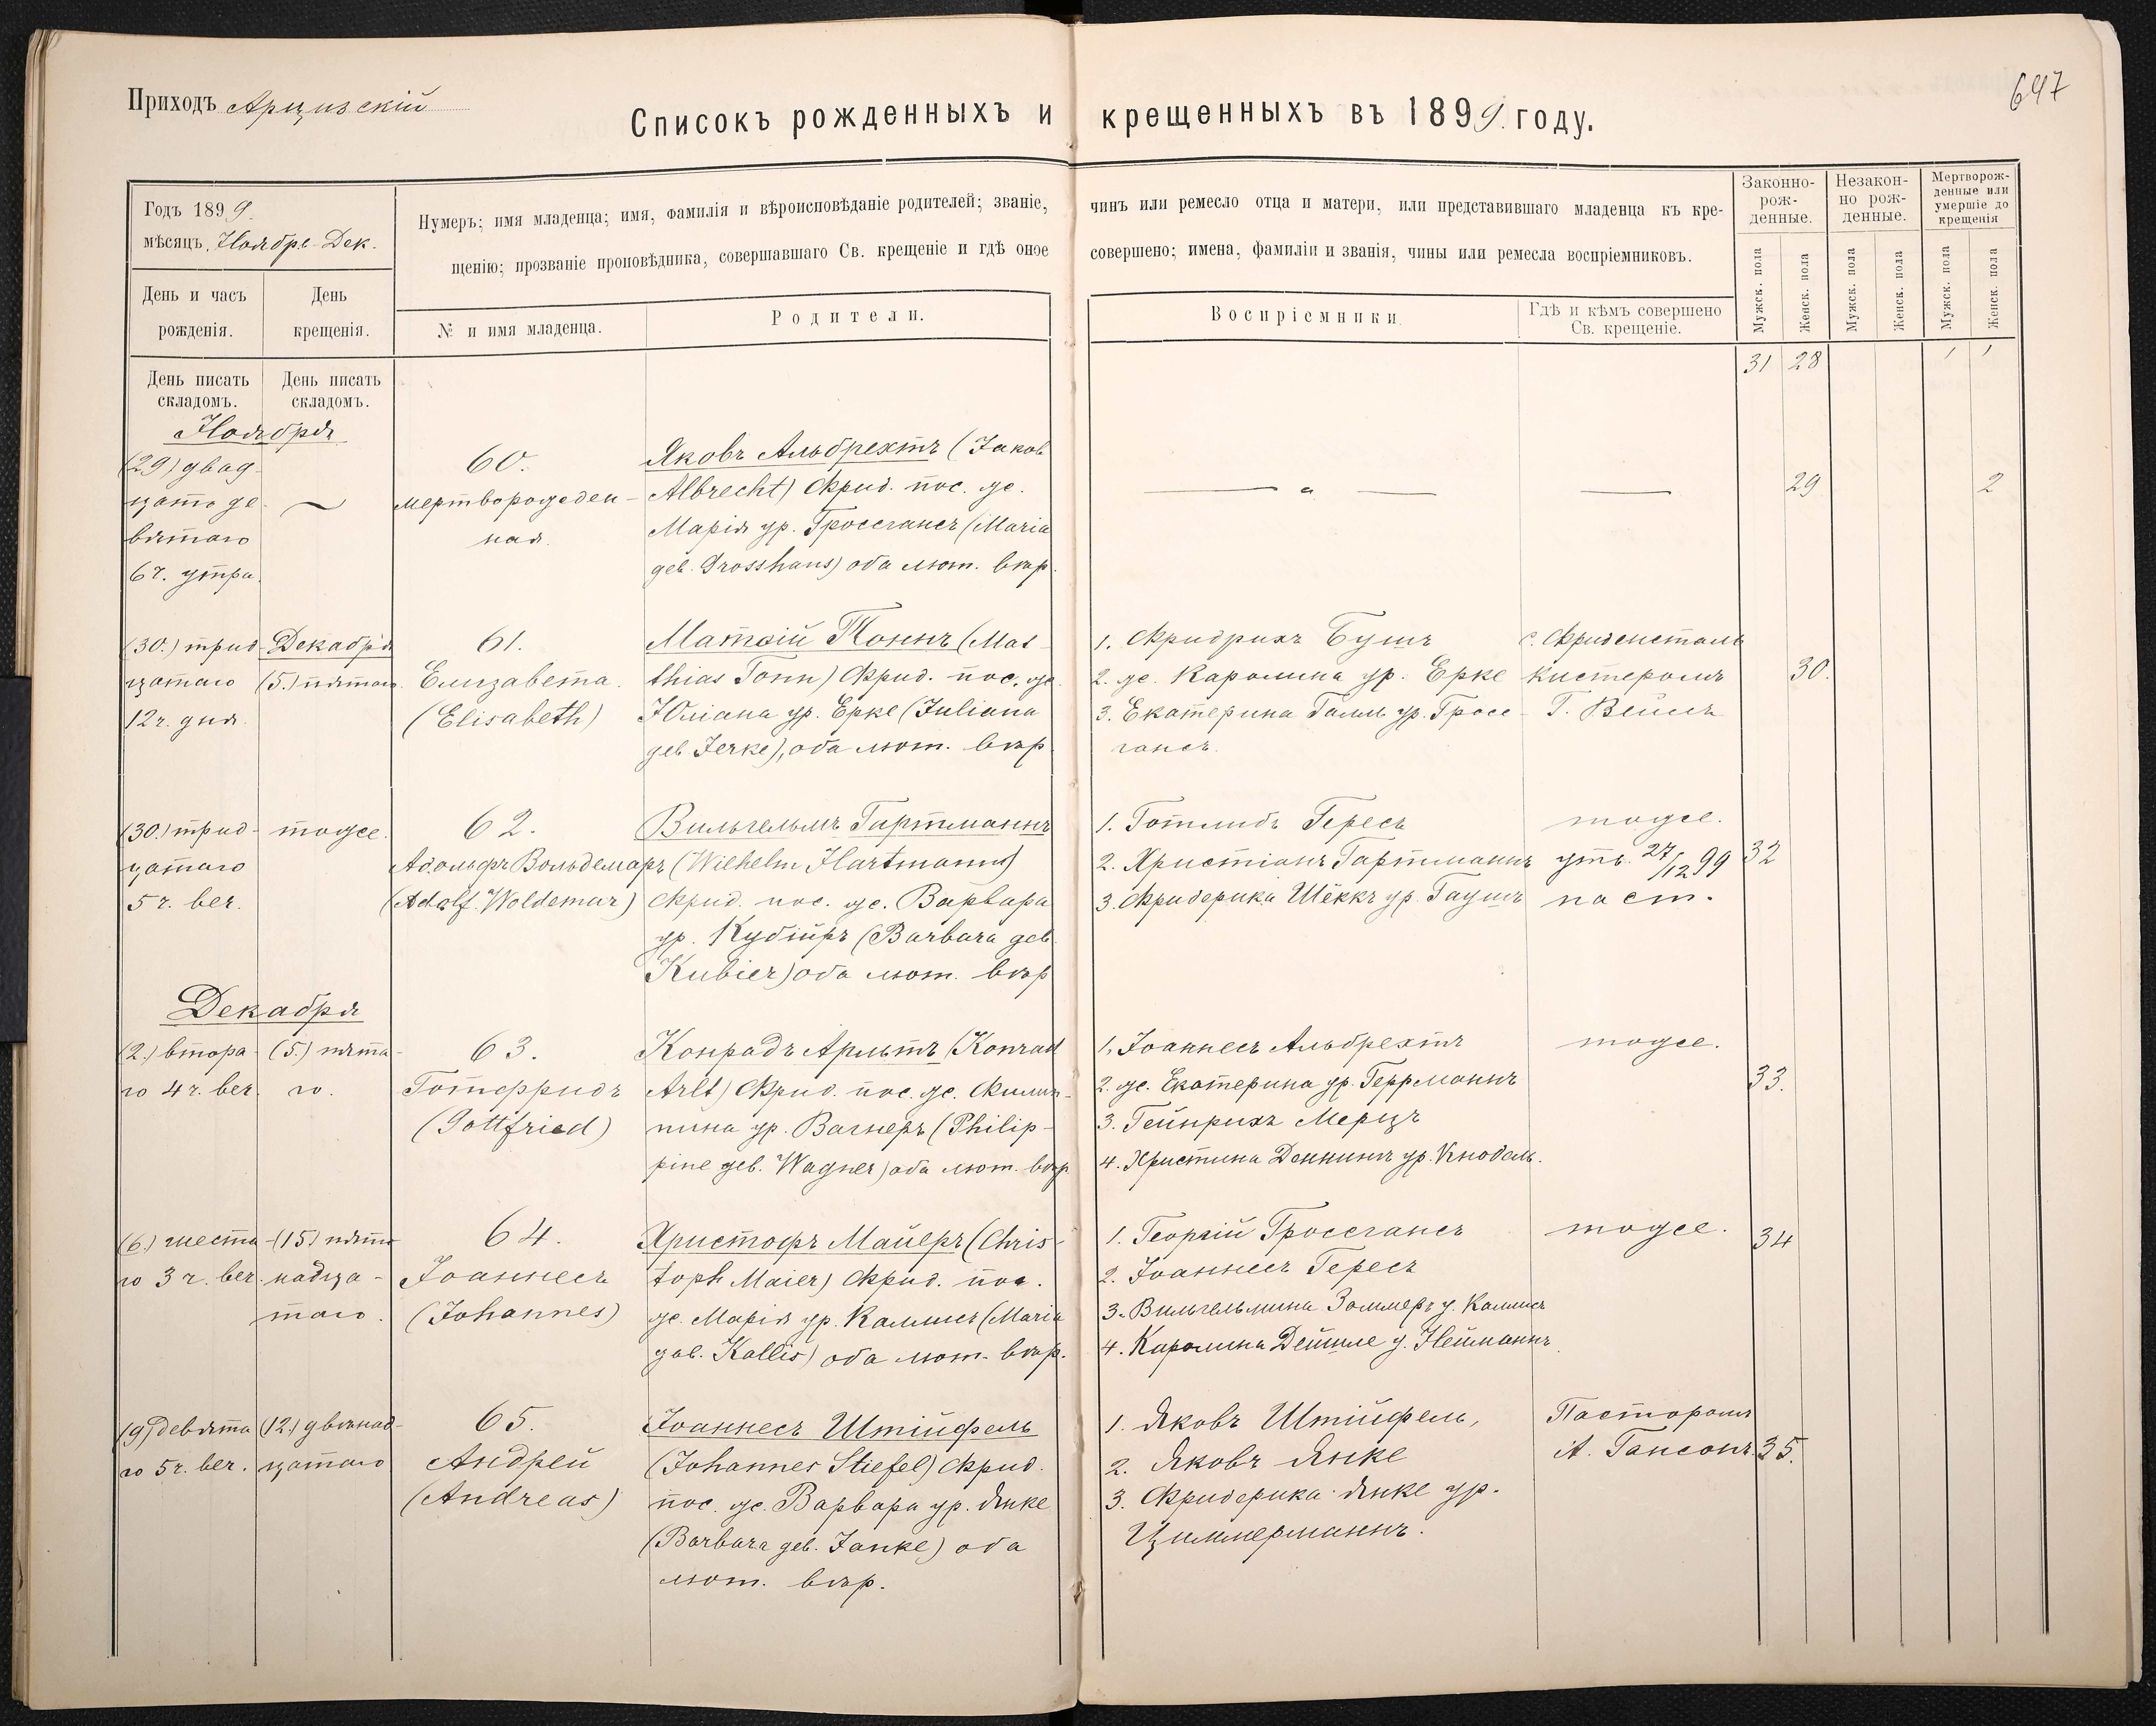 Приходъ Арцизскій
647
Списокъ рожденныхъ и крещенныхъ въ 1899. году.
Годъ 1899.
мѣсяцъ. Ноябрь-Дек.
Нумеръ; имя младенца; имя, фамилія и вѣроисповѣданіе родителей; званіе, чинъ или ремесло отца и матери, или представившаго младенца къ кре-
щенію; прозваніе проповѣдника, совершавшаго Св. крещеніе и гдѣ оное совершено; имена, фамиліи и званія, чины или ремесла воспріемниковъ.
Законно-
рож-
денные.
Незакон-
но рож-
денные.
Мертворож-
денные или
умершіе до
крещенія
Мужск. пола
Женск. пола
Мужск. пола
Женск. пола
Мужск. пола
Женск. пола
День и часъ
рожденія.
День
крещенія.
№ и имя младенца.
Родители.
Воспріемники
Гдѣ и кѣмъ совершено
Св. крещеніе.
31 28 1 1
День писать
складомъ.
День писать
складомъ.
Ноября
(29) двад-
цать де-
вятаго
6 ч. утра.
—
60.
мертворожден-
ная.
Яковъ Альбрехтъ (Jakob
Albrecht) Фрид. пос. ж.
Марія ур. Гроссгансъ (Maria
geb. Grosshans) оба лют. вѣр.
— " —
—
29
2
(30.) трид-
цатаго
12 ч. дня
Декабря
(5.) пятаго.
61.
Елизавета.
(Elisabeth)
Матѳій Тоннъ (Mat-
thias Tonn) Фрид. пос. ж.
Юліана ур. Ерке (Juliana
geb Jerke), оба лют. вѣр
1. Фридрихъ Бушъ
2. ж. Каролина ур. Ерке
3. Екатерина Галль ур. Гросс-
гансъ.
с. Фриденсталь
кистеромъ
Г. Вейсъ
30.
(30.) трид-
цатаго
5 ч. веч.
тоже.
62.
Адольфъ Вольдемаръ
(Adolf Woldemar)
Вильгельмъ Гартманнъ
(Wilhelm Hartmann)
Фрид. пос. ж. Варвара
ур. Кубіиръ (Barbara geb.
Kubier) оба лют. вѣр
1. Готлибъ Гересъ
2. Христіанъ Гартманнъ
3. Фридерика Шёккъ ур. Гаушъ
тоже.
утв. 27/12 99
паст.
32
Декабря
(2.) втора-
го 4 ч. веч.
(5.) пята-
го.
63.
Готфридъ
(Gottfried)
Конрадъ Арльтъ (Konrad
Arlt) Фрид. пос. ж. Филип-
пина ур. Вагнеръ (Philip-
pine geb. Wagner) оба лют. вѣр
1. Іоаннесъ Альбрехтъ
2. ж. Екатерина ур. Геррманнъ
3. Гейнрихъ Мерцъ
4. Христина Деннингъ ур. Кнодель.
тоже.
33.
(6.) шеста-
го 3 ч. веч.
(15) пят-
надца-
таго.
64.
Іоаннесъ
(Johannes)
Христофъ Майеръ (Chris-
toph Maier) Фрид. пос.
ж. Марія ур. Каллисъ (Maria
geb. Kallis) оба лют. вѣр.
1. Георгій Гроссгансъ
2. Іоаннесъ Гересъ
3. Вильгельмина Зоммеръ у. Каллисъ
4. Каролина Дейшле у. Нейманнъ.
тоже.
34
(9) девята
го 5 ч. веч.
(12) двѣнад-
цатаго
65.
Андрей
(Andreas)
Іоаннесъ Штійфель
(Johannes Stiefel) Фрид.
пос. ж. Варвара ур. Янке
(Barbara geb. Janke) оба
лют. вѣр.
1. Яковъ Штійфель,
2. Яковъ Янке
3. Фридерика Янке ур.
Циммерманнъ.
Пасторомъ
А. Гансонъ.
35.